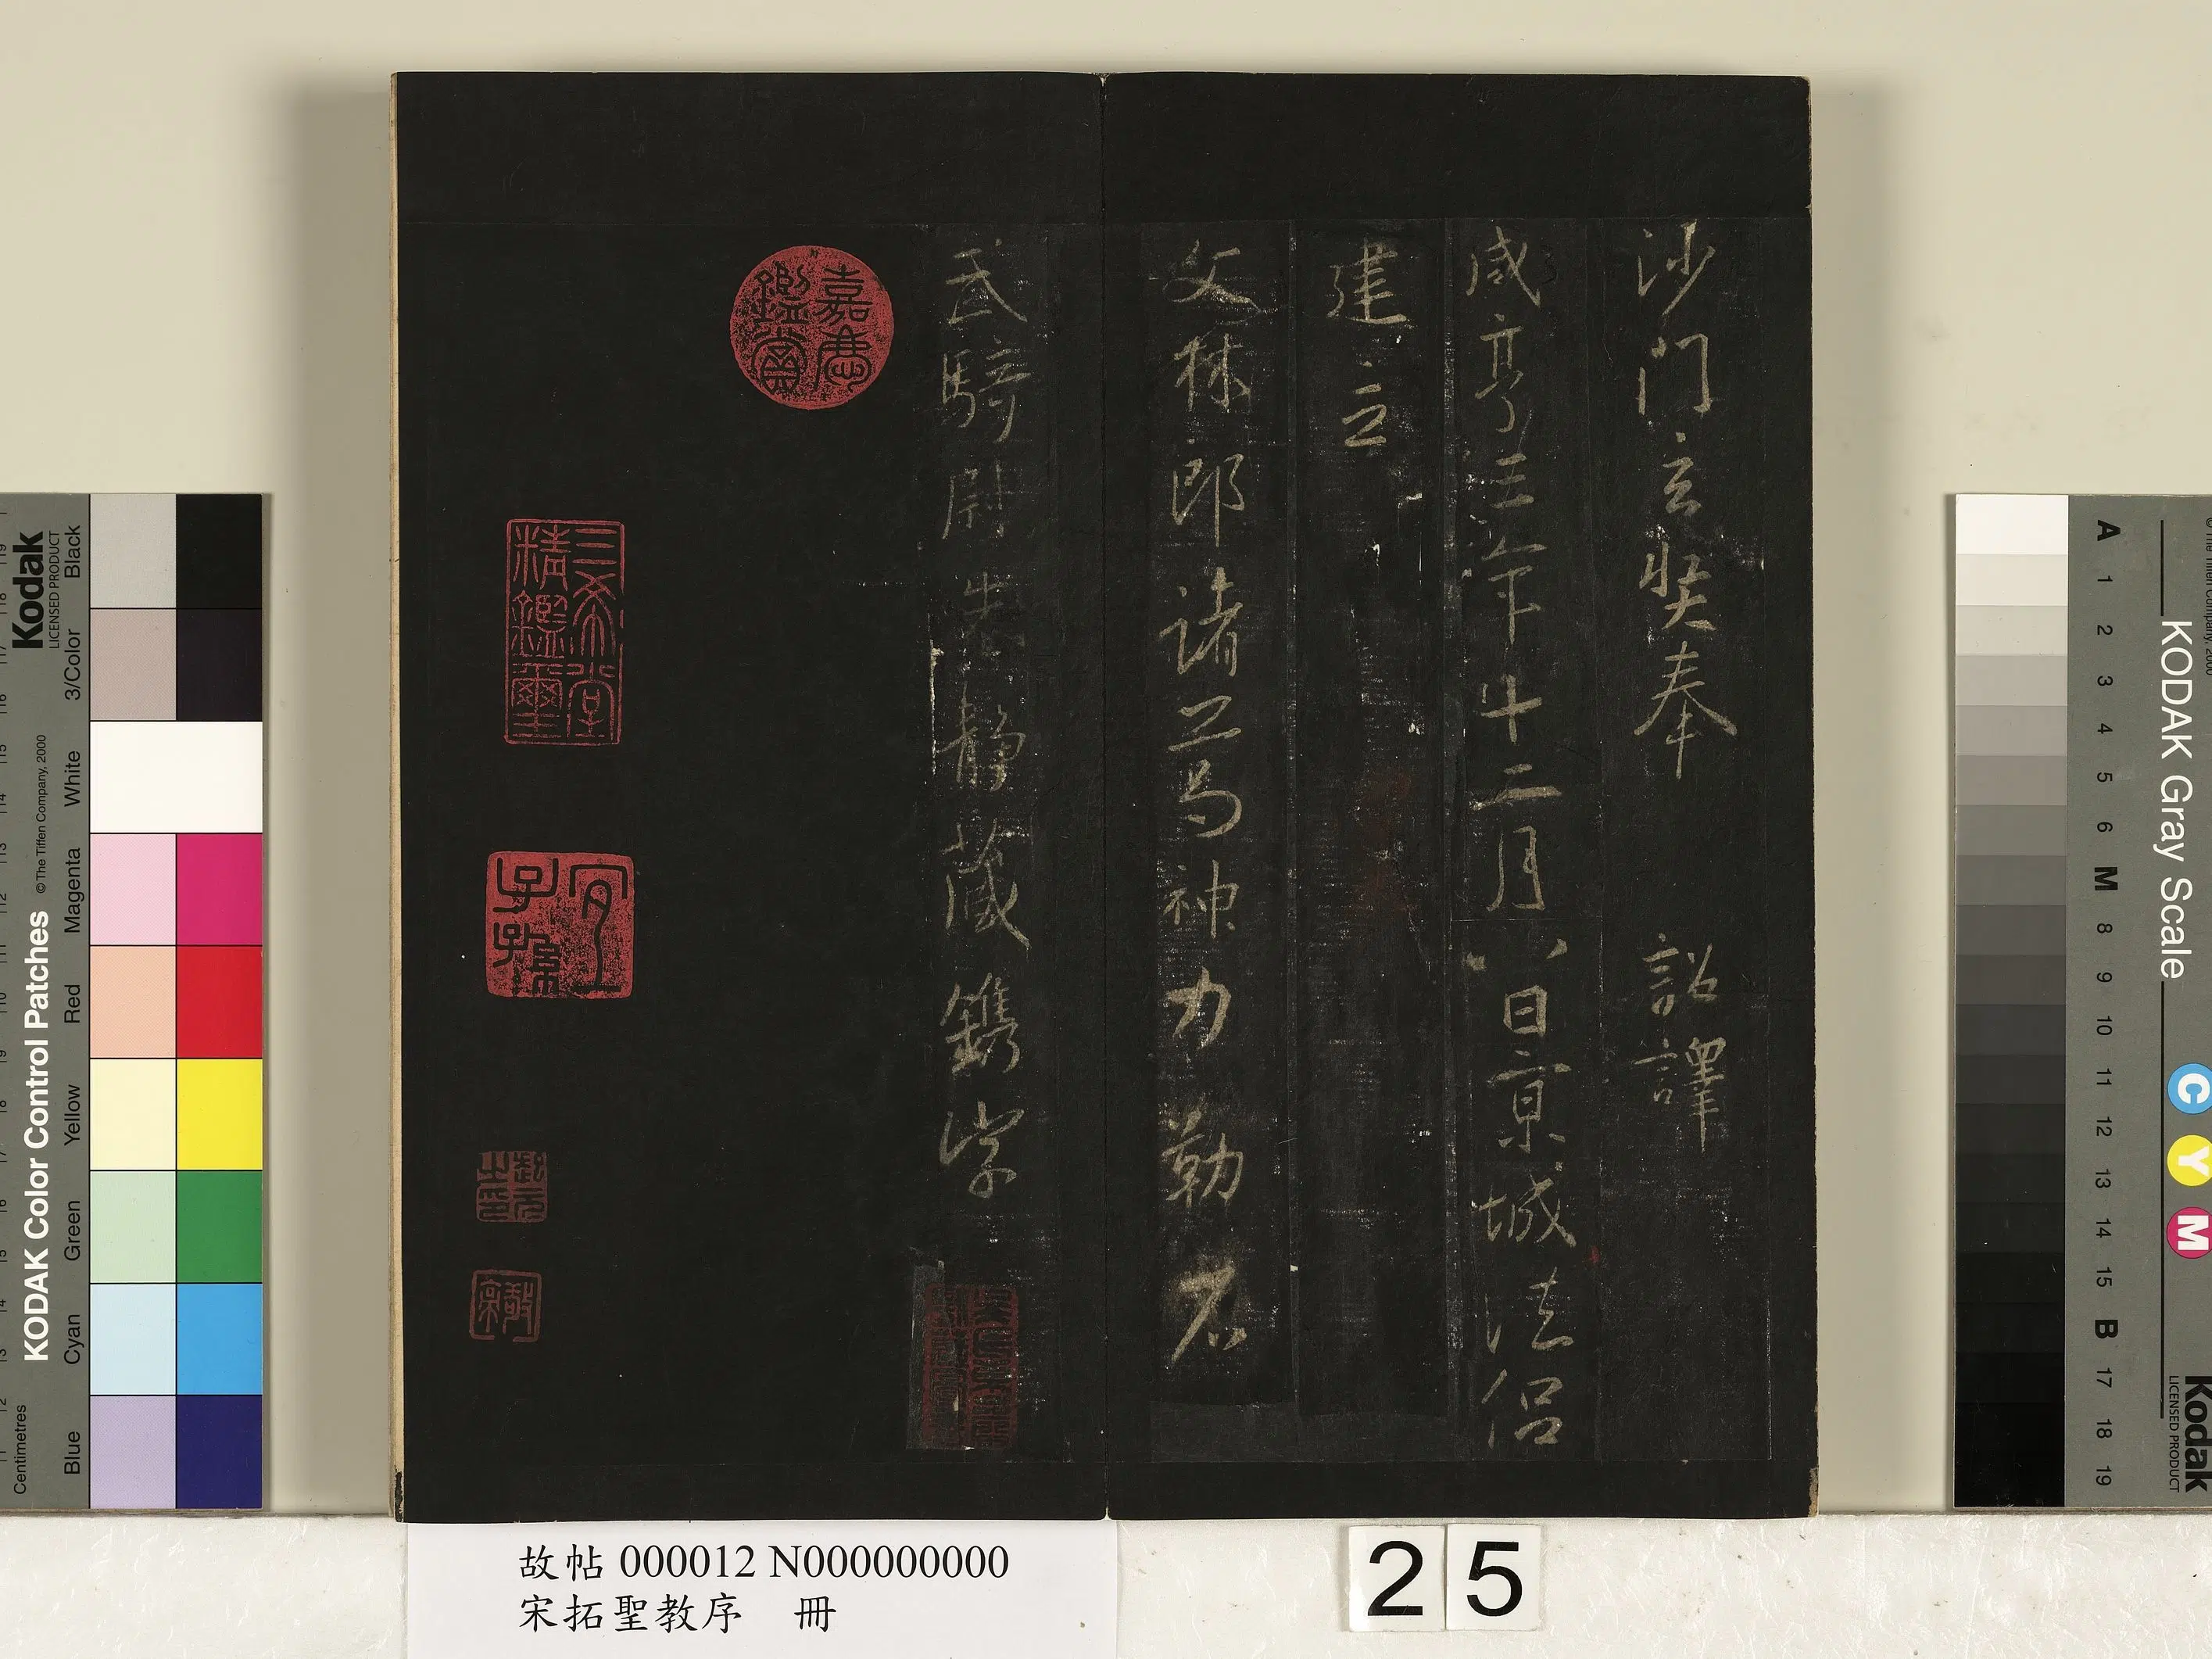 沙門玄奘奉　詔譯
咸亨三年十二月八日京城法侶
建立
文林郎諸葛神力勒石
武騎尉朱靜藏鐫字
嘉慶鑑賞
三希堂精鑑璽
宜子孫
故帖 000012 N000000000
宋拓聖教序 冊
25
Kodak
LICENSED PRODUCT
KODAK Color Control Patches
©The Tiffen Company, 2000
Centimetres
Blue Cyan Green Yellow Red Magenta White 3/Color Black
KODAK Gray Scale
A 1 2 3 4 5 6 M 8 9 10 11 12 13 14 15 B 17 18 19
C Y M
Kodak
LICENSED PRODUCT